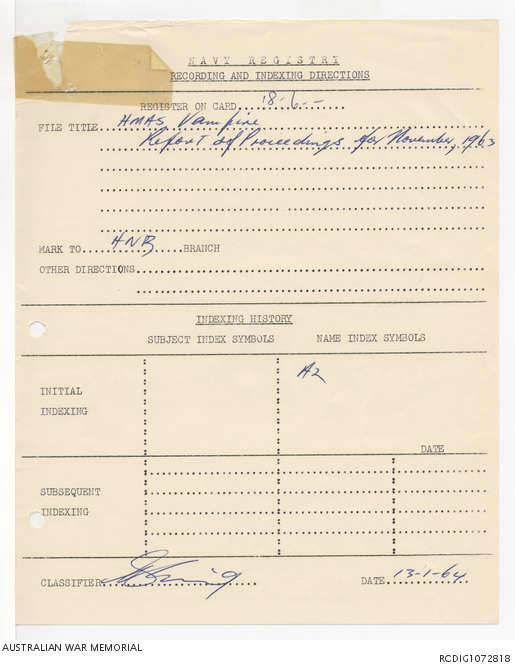 NAVY REGISTRY
RECORDING AND INDEXING DIRECTIONS
REGISTER ON CARD 18-6--
FILE TITLE HMAS Vampire
Report of Proceedings for November, 1963
MARK TO HNB BRANCH
OTHER DIRECTIONS
INDEXING HISTORY
SUBJECT INDEX SYMBOLS NAME INDEX SYMBOLS
INITIAL INDEXING A2
DATE
SUBSEQUENT INDEXING
CLASSIFIER DATE 13-1-64
AUSTRALIAN WAR MEMORIAL RCDIG1072818